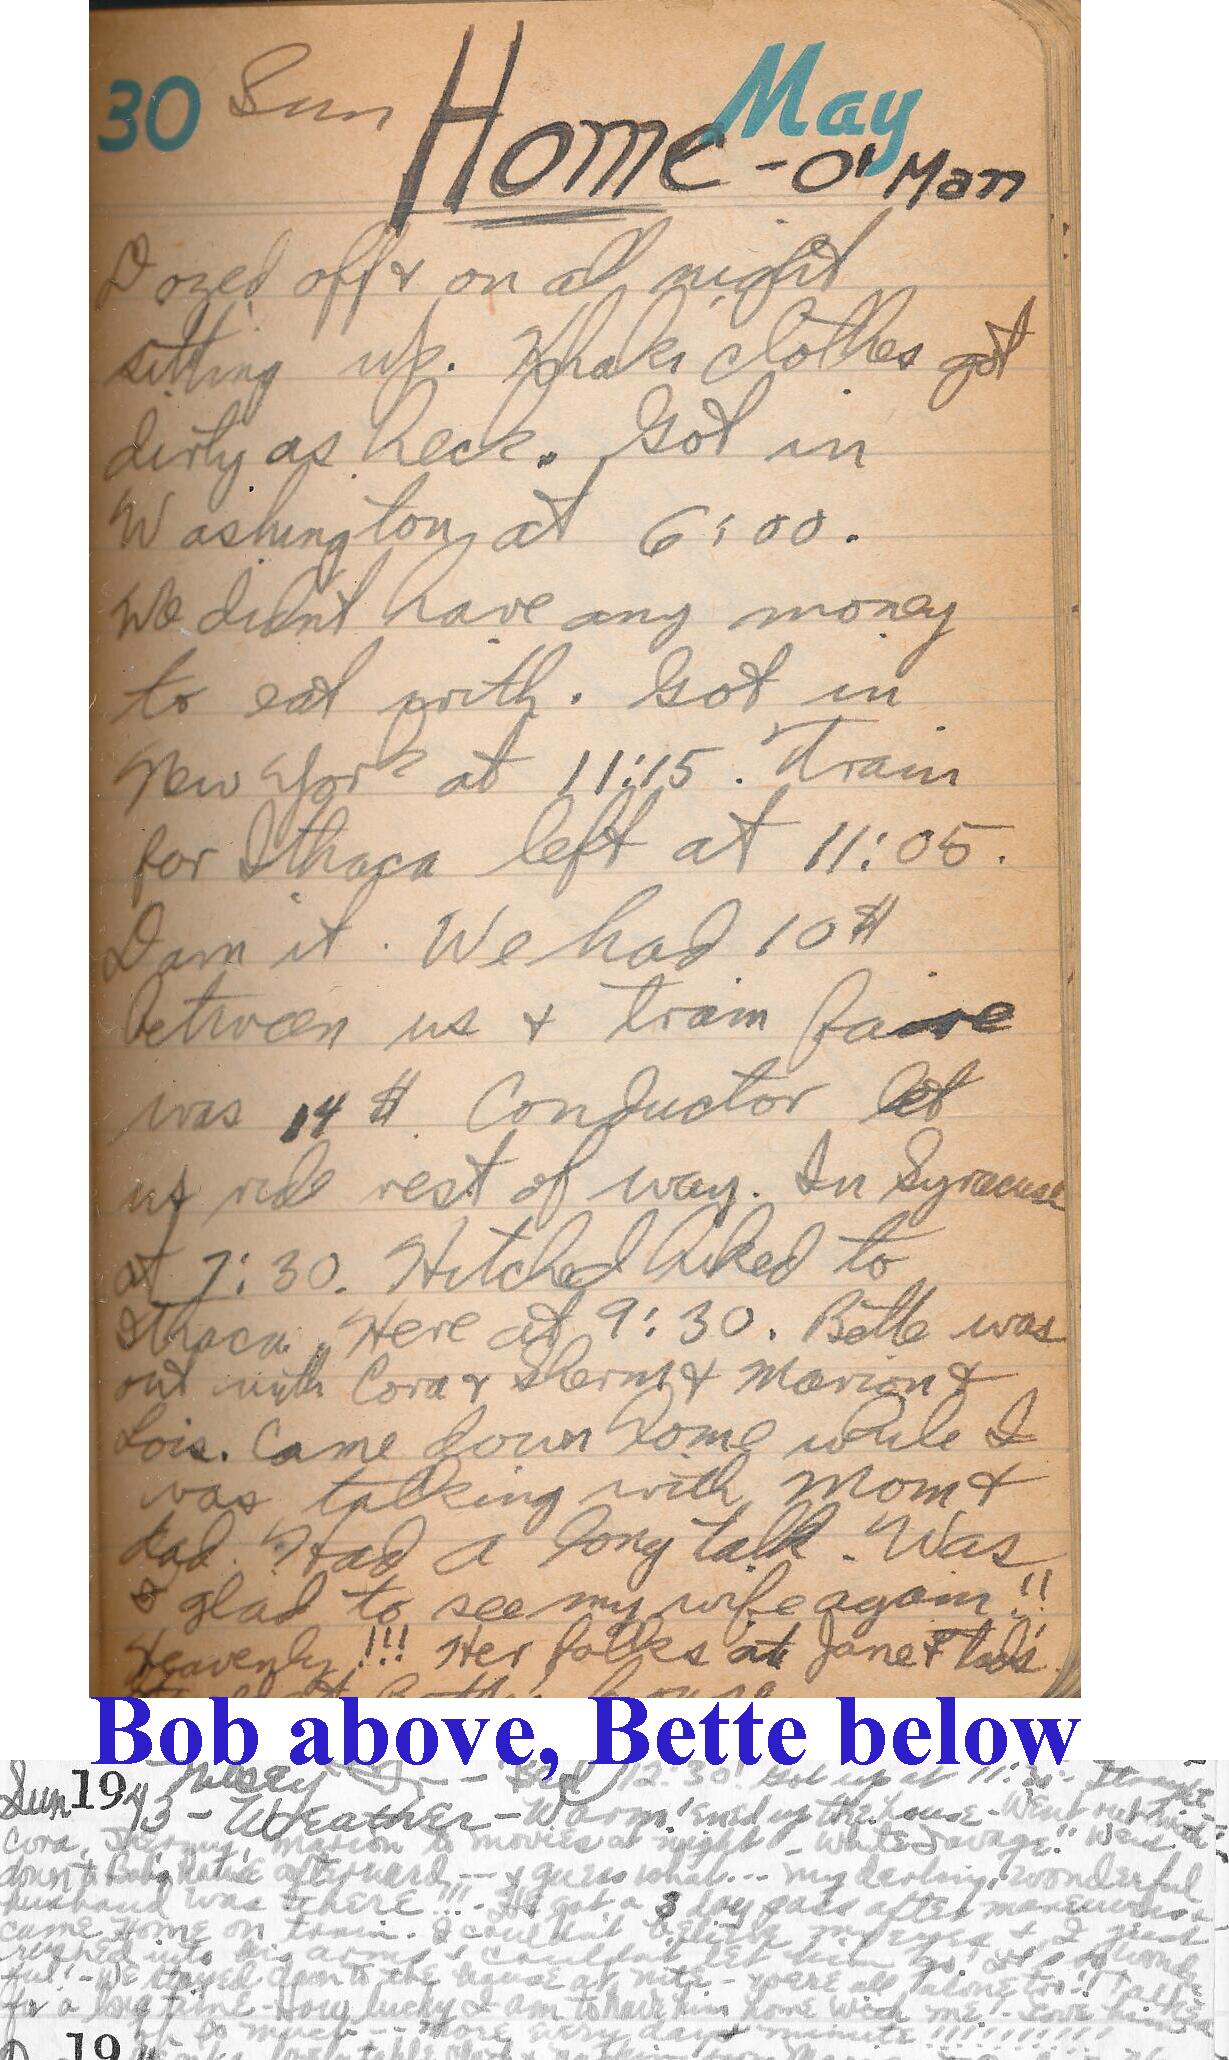 30 Sun May
Home - O' Man
Dozed off & on all night
sitting up. Khaki clothes got
dirty as heck. Got in
Washington at 6:00.
We didn't have any money
to eat with. Got in
New York at 11:15. Train
for Ithaca left at 11:05.
Dam it. We had 10$
between us & train faire
was 14$. Conductor let
us ride rest of way. In Syracuse
at 7:30. Hitched hiked to
Ithaca. Here at 9:30. Bette was
out with Cora & Sherm & Marion &
Lois. Came down home while I
was talking with Mom &
Dad. Had a long talk. Was
I glad to see my wife again!!
Heavenly!!! Her folks at Jane & Tad's
house
Bob above, Bette below
12:30! Got up at 11:30.
Sun 1943 - Weather - Warm! the house - Went out with
Cora, Shermy, Marion to movies at night - White Savage!! Went
down to Bob's house afterward --- & guess what... my darling, wonderful
husband was there!!! - He got a 3 day pass after maneuvers &
came home on train. I couldn't believe my eyes & I just
rushed into his arms & couldn't let him go! wonder
ful! - We stayed down to the house at nite - were all alone too!! Talked
for a long time - How lucky I am to have him home with me! - Love him
so much -- more every day & minute !!!!!!!!!!
19